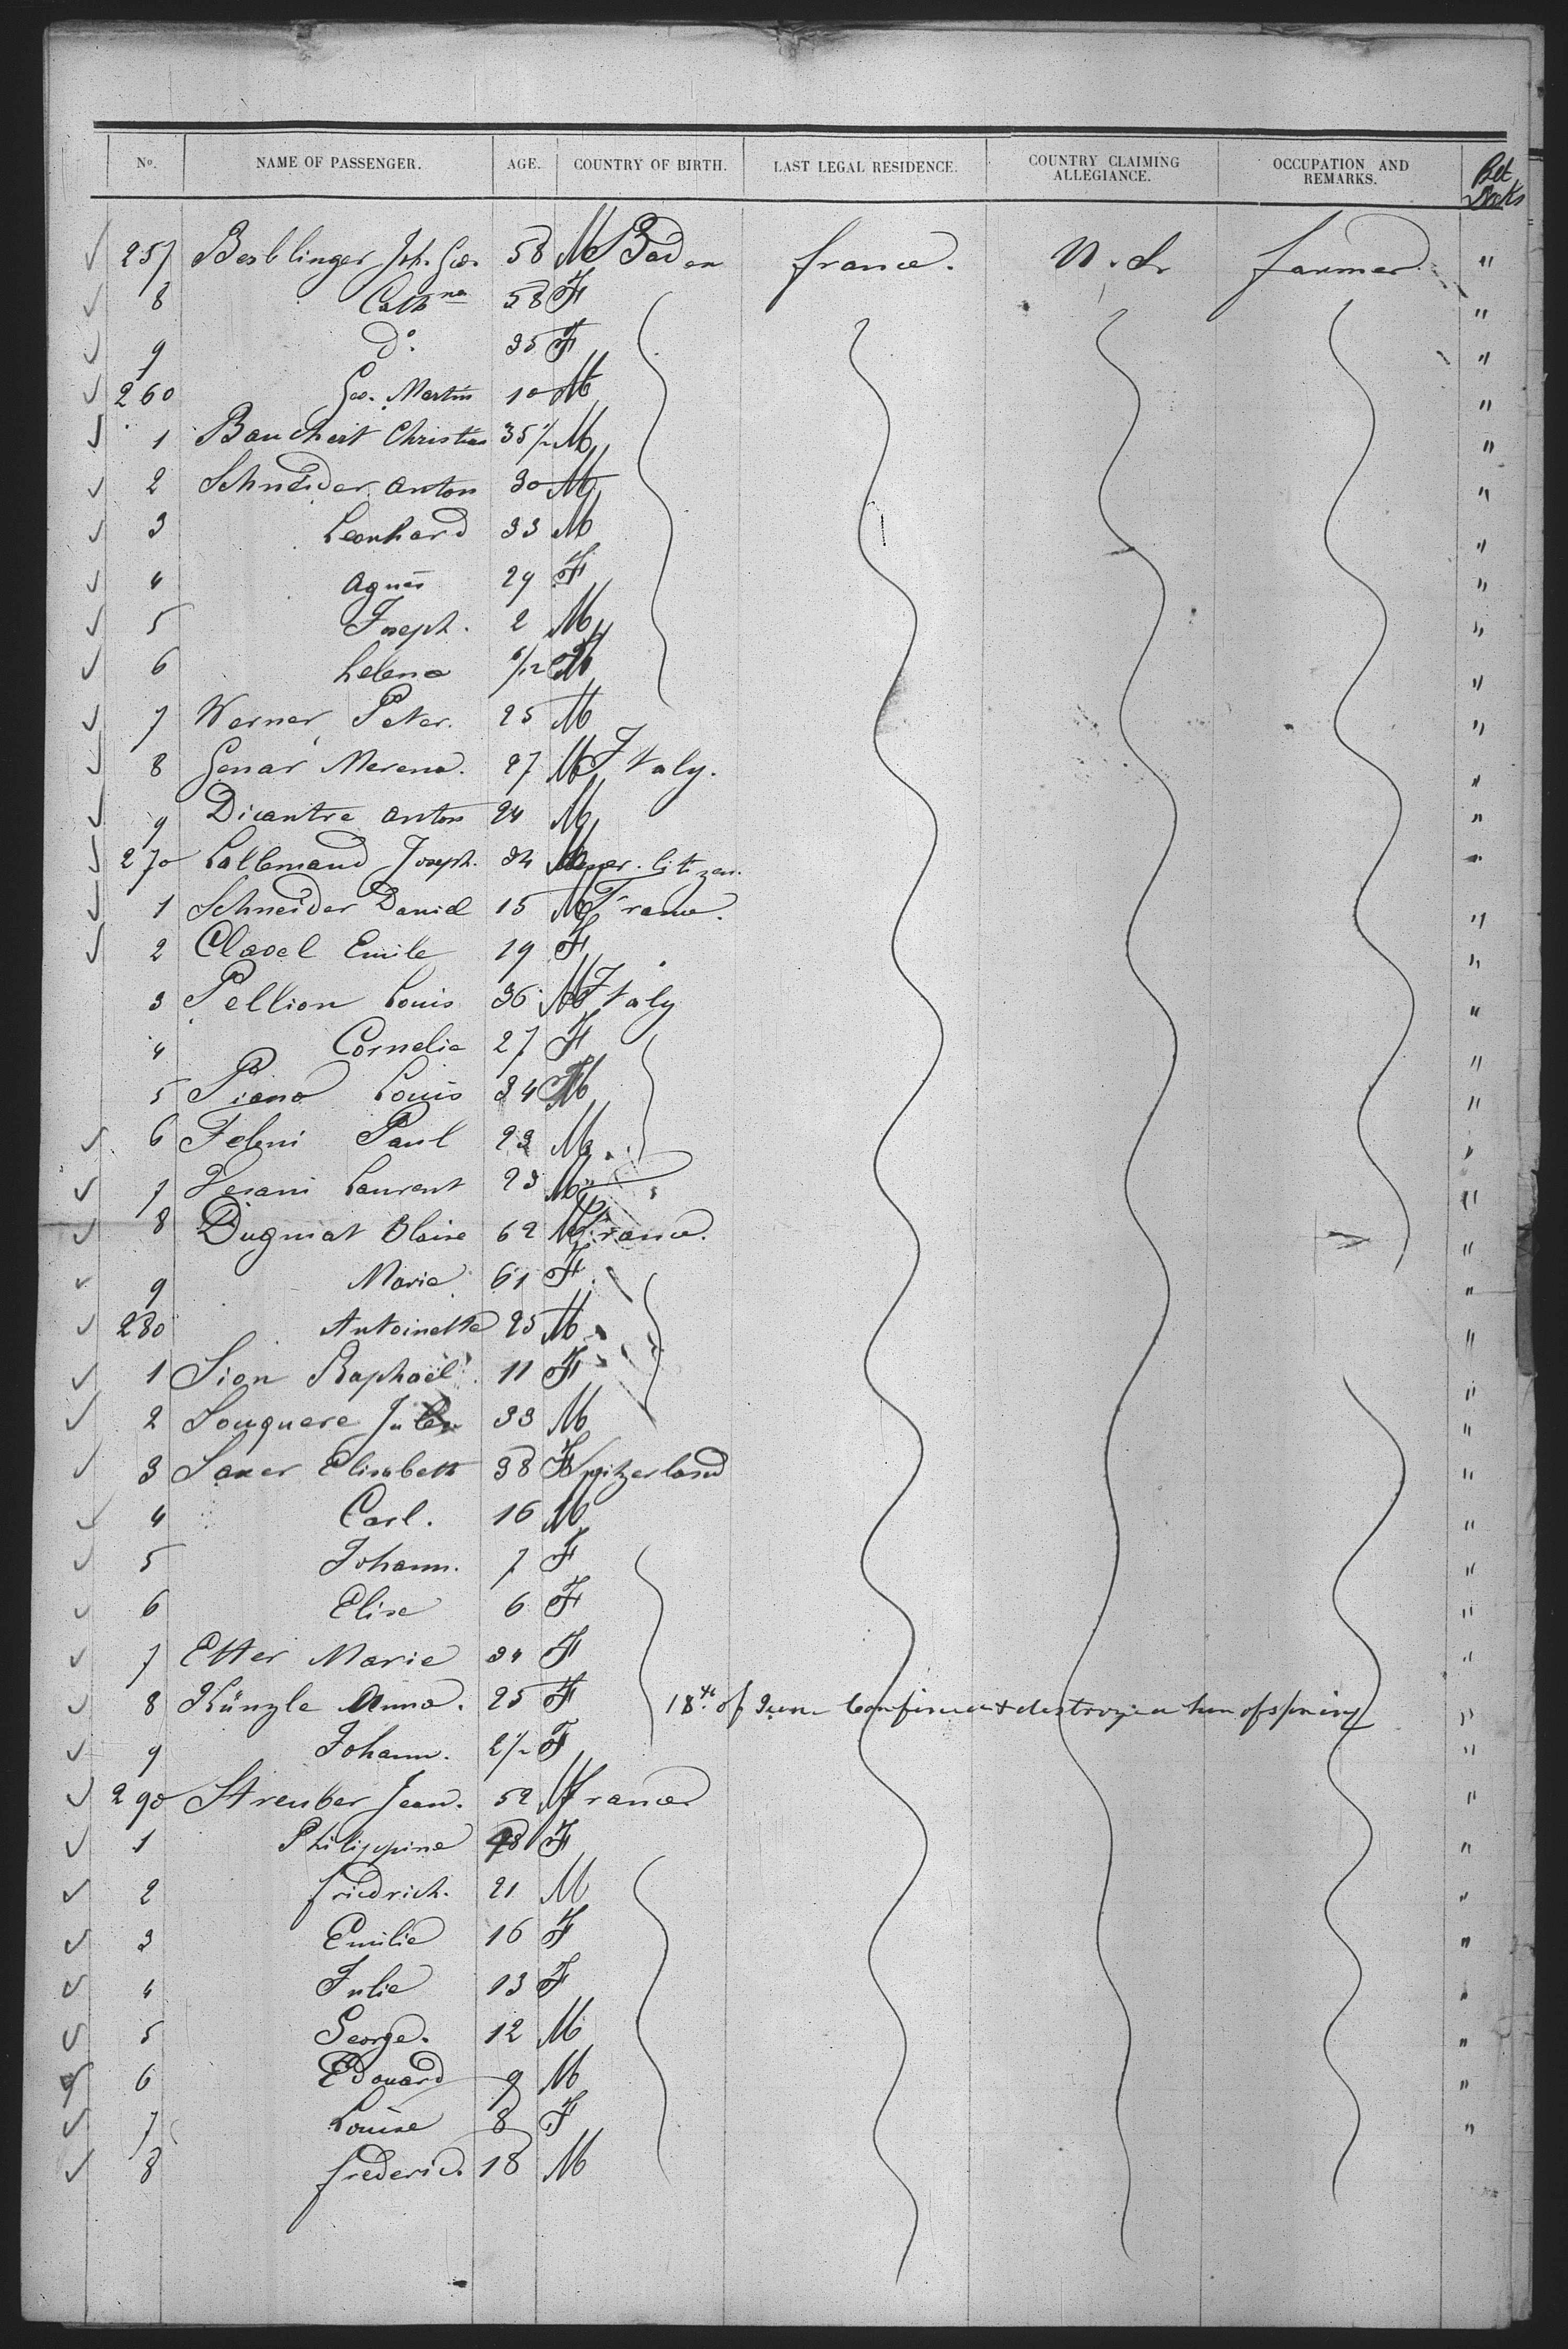 No. NAME OF PASSENGER. AGE. COUNTRY OF BIRTH. LAST LEGAL RESIDENCE. COUNTRY CLAIMING ALLEGIANCE. OCCUPATION AND REMARKS. Bet Decks
257 Besblinger Joh. Geo. 58 M Baden france. U. S. farmer "
8 Cathna 58 F "
9 do. 35 F "
260 Geo. Martin 10 M "
1 Bauchert Christian 35 M "
2 Schneider Anton 30 M "
3 Leonhard 33 M "
4 Agnes 29 F "
5 Joseph. 2 M "
6 Helena 6/12 "
7 Werner, Peter. 25 M "
8 Genar Merena. 27 M Italy. "
9 Dicantre Anton 24 M "
270 Lallemand Joseph. 34 Amer. Citizen.
1 Schneider Daniel 15 M France. "
2 Clavel Emile 19 F "
3 Pellion Louis 36 M Italy "
4 Cornelia 27 F "
5 Piano Louis 34 M "
6 Feleni Paul 23 M "
7 Vesani Laurent 23 M " "
8 Dugmat Blaise 62 M France. "
9 Marie 61 F "
280 Antoinette 25 M "
1 Sion Raphaël 11 F "
2 Souquere 33 M "
3 Saxer Elisabeth 38 F Switzerland "
4 Carl. 16 M "
5 Johann. 7 F "
6 Elise 6 F "
7 Etter Marie 34 F "
8 Künzle Anna. 25 F 18th of June offspring "
9 Johann. F "
290 Streuber Jean. 52 M france "
1 Philippine 48 F "
2 friedrich. 21 M "
3 Emilie 16 F "
4 Julie 13 F "
5 George. 12 M "
6 Edouard 9 M "
7 Louise 8 F "
8 frederic. 18 M